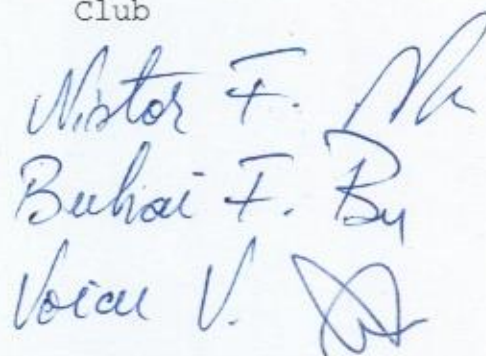 Club
Nistor F.
Buhai F. Bu
Voicu V.